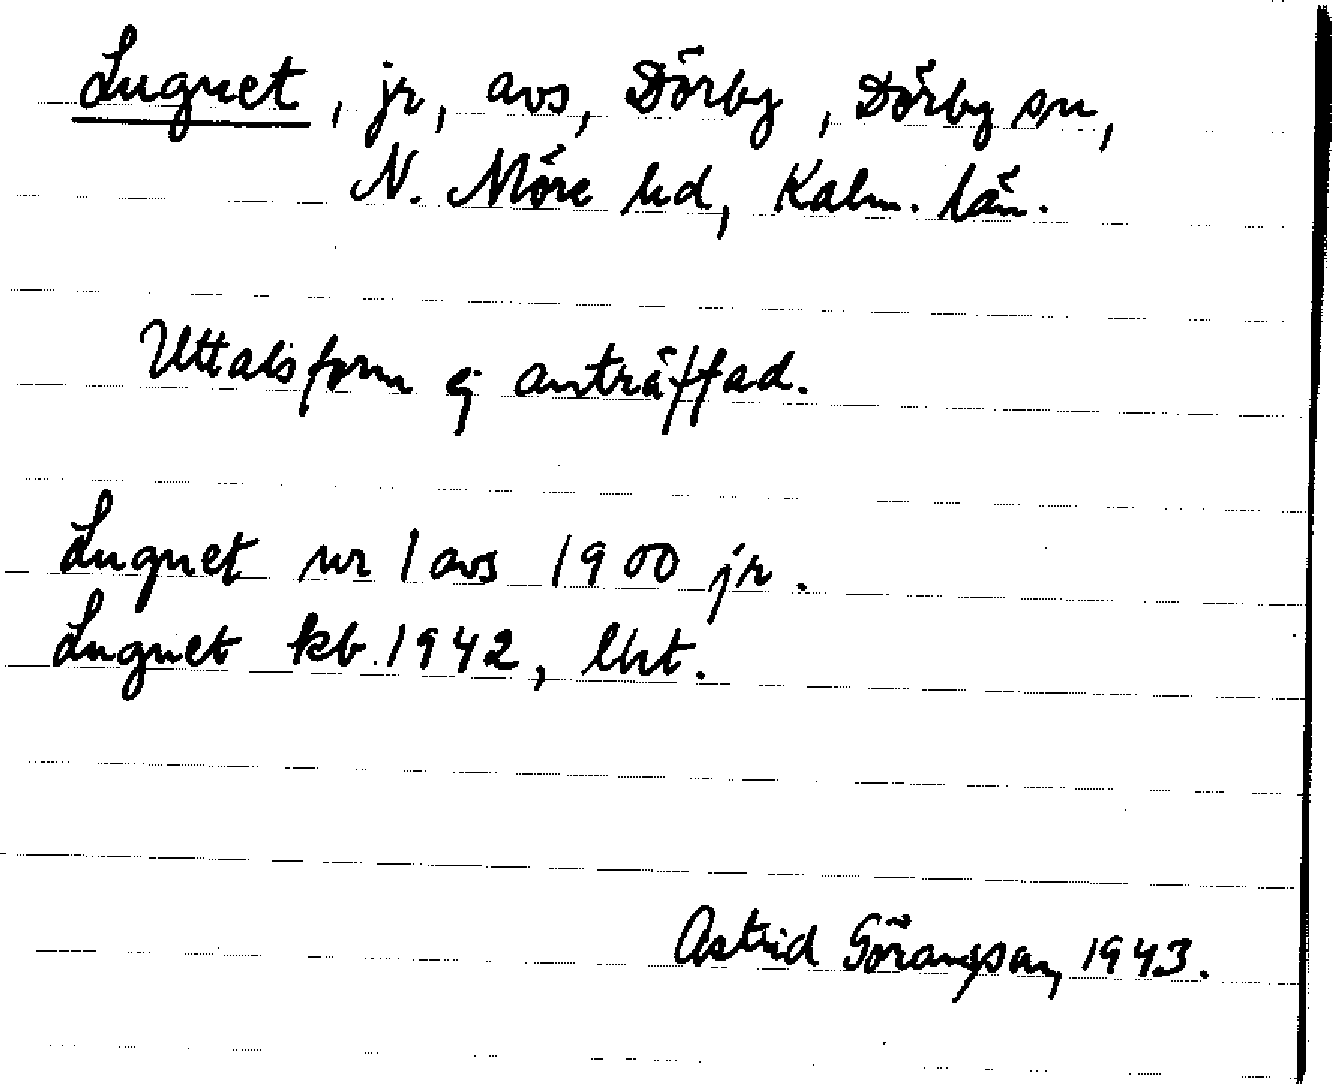 Lugnet, jr, avs, Dörby, Dörby sn,
N. Möre hd, Kalm. län.
Uttalsform ej anträffad.
Lugnet nr 1 avs 1900 jr.
Lugnet kb. 1942, lht.
Astrid Göransson, 1943.